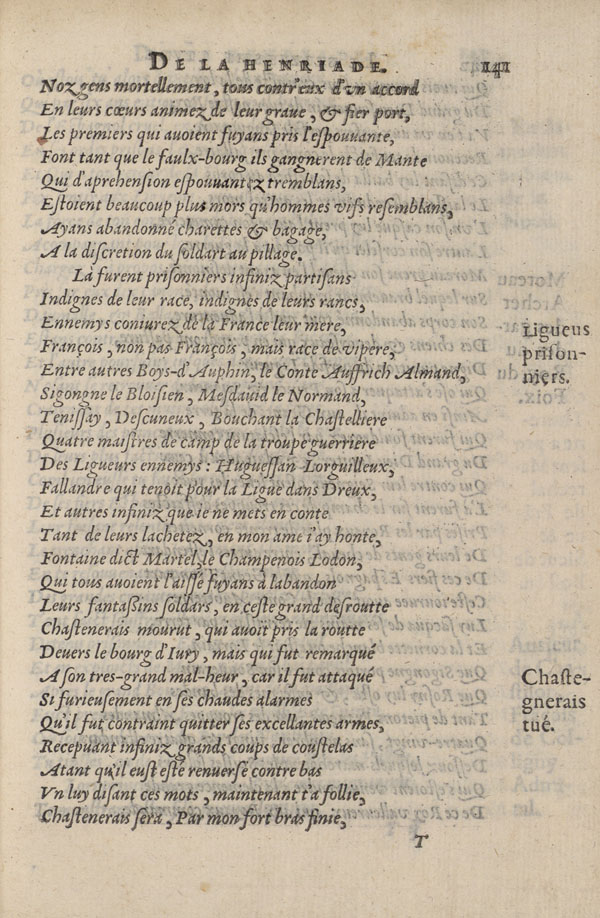 DE LA HENRIADE. 141
Noz gens mortellement, tous contr'eux d'vn accord
En leurs cœurs animez de leur graue, & fier port,
Les premiers qui auoient fuyans pris l'espouuante,
Font tant que le faulx-bourg ils gangnerent de Mante
Qui d'aprehension espouuantez tremblans,
Estoient beaucoup plus mors qu'hommes vifs resemblans,
Ayans abandonné charettes & bagage,
A la discretion du soldart au pillage.
Là furent prisonniers infiniz partisans
Indignes de leur race, indignes de leurs rancs,
Ennemys coniurez de la France leur mere,
Ligueus
François, non pas François, mais race de vipere,
prison-
Entre autres Boys-d'Auphin, le Conte Auffrich Almand,
niers.
Sigongne le Bloisien, Mesdauid le Normand,
Tenissay, Descuneux, Bouchant la Chastelliere
Quatre maistres de camp de la troupe guerriere
Des Ligueurs ennemys: Huguessan Lorguilleux,
Fallandre qui tenoit pour la Ligue dans Dreux,
Et autres infiniz que ie ne mets en conte
Tant de leurs lachetez, en mon ame i'ay honte,
Fontaine dict Martel, le Champenois Lodon,
Qui tous auoient l'aissé fuyans à labandon
Leurs fantassins soldars, en ceste grand desroutte
Chastenerais mourut, qui auoit pris la routte
Deuers le bourg d'Iury, mais qui fut remarqué
A son tres-grand mal-heur, car il fut attaqué
Chaste-
Si furieusement en ses chaudes alarmes
gnerais
Qu'il fut contraint quitter ses excellantes armes,
tué.
Recepuant infiniz grands coups de coustelas
Atant qu'il eust esté renuersé contre bas
Vn luy disant ces mots, maintenant t'a follie,
Chastenerais sera, Par mon fort bras finie,
T